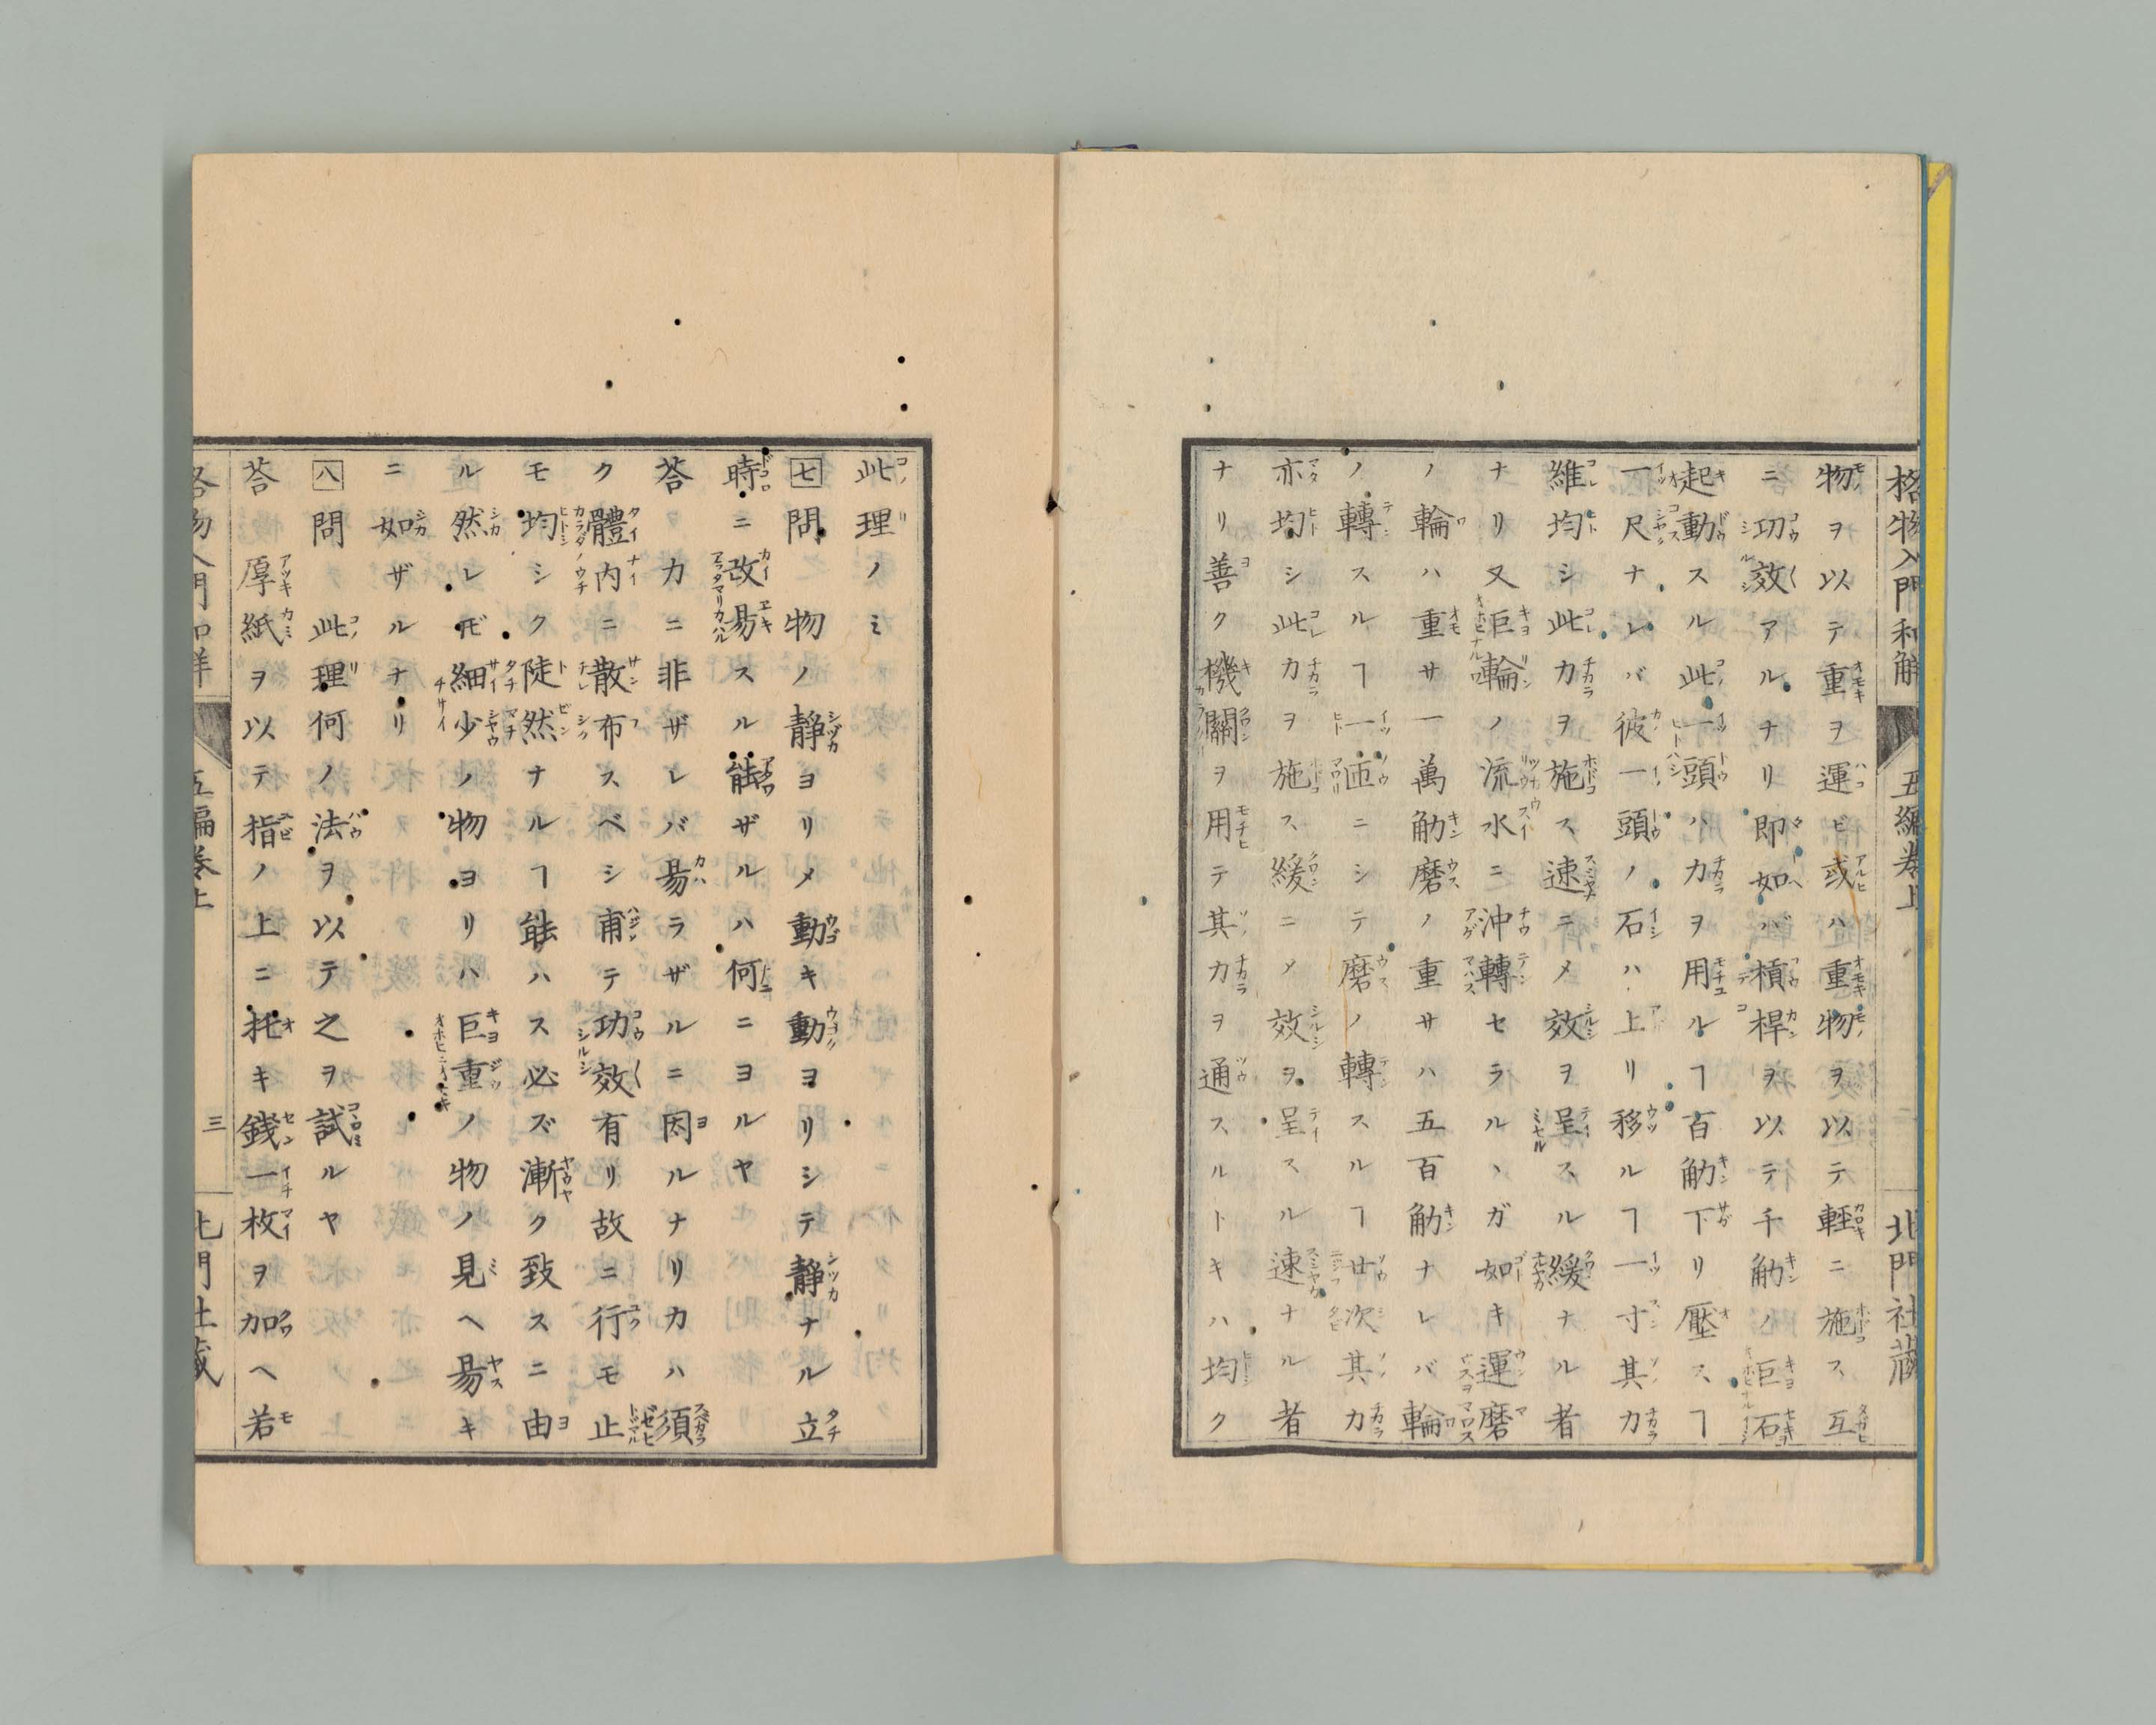 格物入門和解 五編卷上 二 北門社藏
物ヲ以テ重ヲ運ビ或ハ重物ヲ以テ輕ニ施ス互
ニ功效アルナリ即如バ槓桿ヲ以テ千觔ノ巨石
起動スル此一頭ハ力ヲ用ルヿ百觔下リ壓スヿ
一尺ナレバ彼一頭ノ石ハ上リ移ルヿ一寸其力
維均シ此力ヲ施ス速ニメ效ヲ呈スル緩ナル者
ナリ又巨輪ノ流水ニ沖轉セラルヽガ如キ運磨
ノ輪ハ重サ一萬觔磨ノ重サハ五百觔ナレバ輪
ノ轉スルヿ一匝ニシテ磨ノ轉スルヿ廿次其力
亦均シ此力ヲ施ス緩ニメ效ヲ呈スル速ナル者
ナリ善ク機關ヲ用テ其力ヲ通スルトキハ均ク
此理ノミ
七問 物ノ靜ヨリメ動キ動ヨリシテ靜ナル立
時ニ改易スル能ザルハ何ニヨルヤ
荅 力ニ非ザレバ昜ラザルニ因ルナリカハ須
ク體內ニ散布スベシ甫テ功效有リ故ニ行モ止
モ均シク陡然ナルヿ能ハス必ズ漸ク致スニ由
ル然レ𪜈細少ノ物ヨリハ巨重ノ物ノ見ヘ昜キ
ニ如ザルナリ
八問 此理何ノ法ヲ以テ之ヲ試ルヤ
荅 厚紙ヲ以テ指ノ上ニ托キ錢一枚ヲ加ヘ若
格物入門和解 五編卷上 三 北門社藏